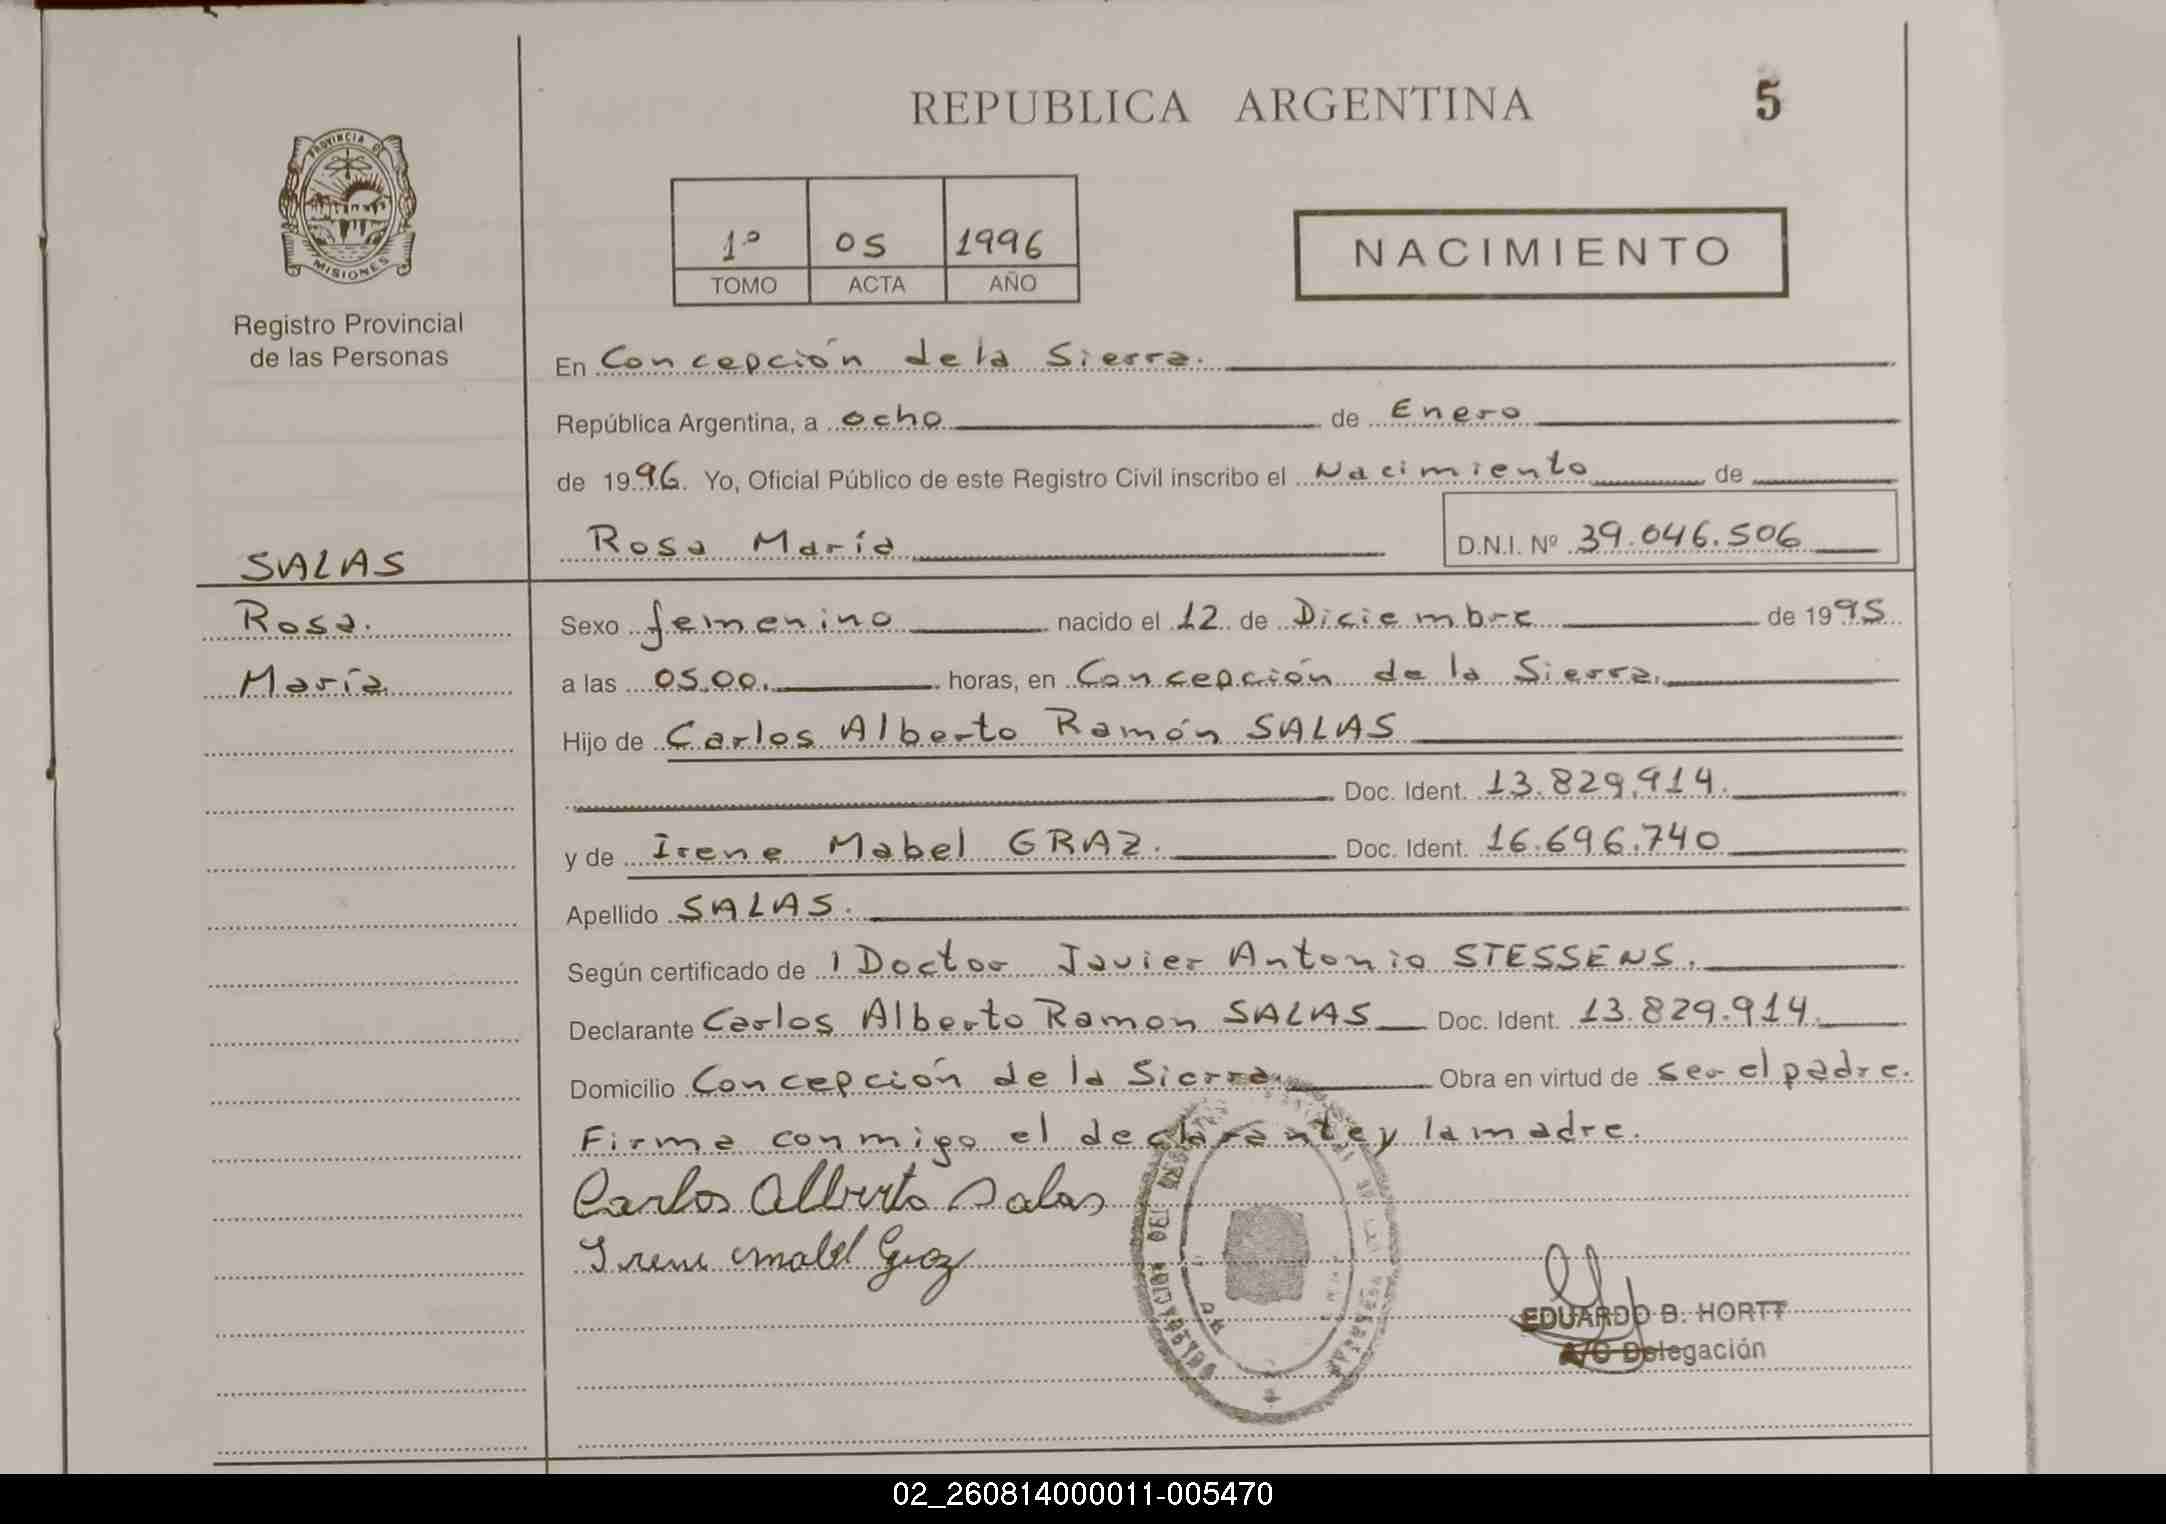 REPUBLICA ARGENTINA
5
PROVINCIA DE
MISIONES
Registro Provincial
de las Personas
1º 05 1996
TOMO ACTA AÑO
NACIMIENTO
En Concepción de la Sierra.
República Argentina, a ocho de Enero
de 1996. Yo, Oficial Público de este Registro Civil inscribo el Nacimiento de
Rosa María D.N.I. Nº 39.046.506
SALAS
Rosa.
María
Sexo femenino nacido el 12 de Diciembre de 1995
a las 05.00. horas, en Concepción de la Sierra.
Hijo de Carlos Alberto Ramón SALAS
Doc. Ident. 13.829.914.
y de Irene Mabel GRAZ. Doc. Ident. 16.696.740
Apellido SALAS.
Según certificado de Doctor Javier Antonio STESSENS.
Declarante Carlos Alberto Ramon SALAS Doc. Ident. 13.829.914.
Domicilio Concepción de la Sierra Obra en virtud de ser el padre.
Firma conmigo el declarante y la madre.
Carlos Alberto Salas
Irene Mabel Graz
EDUARDO B. HORTT
A/C Delegación
02_260814000011-005470